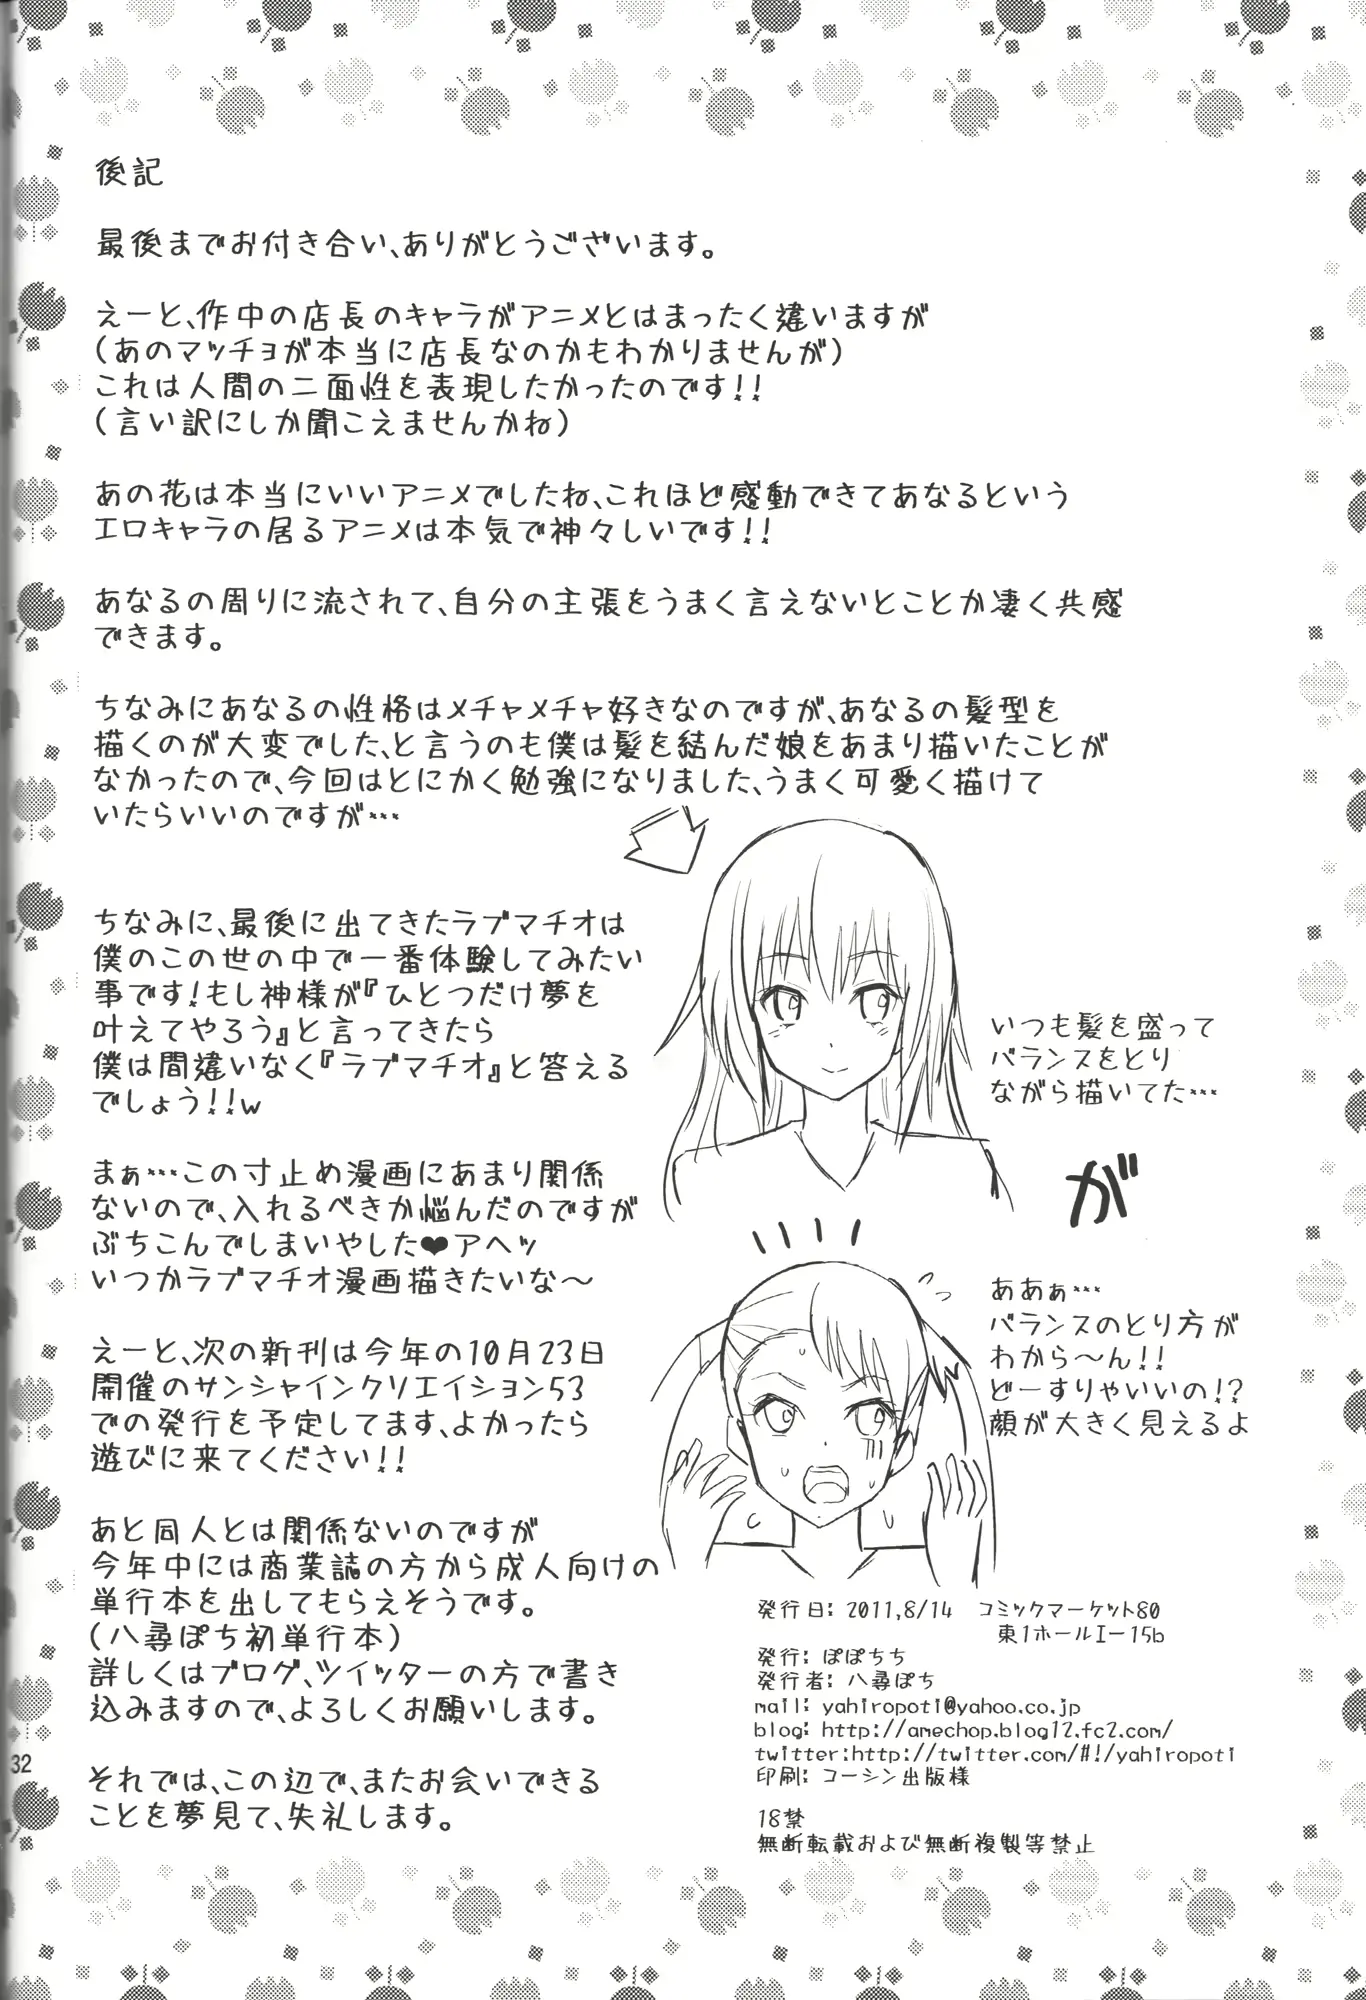 後記
最後までお付き合い、ありがとうございます。
えーと、作中の店長のキャラがアニメとはまったく違いますが
(あのマッチョが本当に店長なのかもわかりませんが)
これは人間の二面性を表現したかったのです!!
(言い訳にしか聞こえませんかね)
あの花は本当にいいアニメでしたね、これほど感動できてあなるという
エロキャラの居るアニメは本気で神々しいです!!
あなるの周りに流されて、自分の主張をうまく言えないとことか凄く共感
できます。
ちなみにあなるの性格はメチャメチャ好きなのですが、あなるの髪型を
描くのが大変でした、と言うのも僕は髪を結んだ娘をあまり描いたことが
なかったので、今回はとにかく勉強になりました、うまく可愛く描けて
いたらいいのですが…
ちなみに、最後に出てきたラブマチオは
僕のこの世の中で一番体験してみたい
事です!もし神様が『ひとつだけ夢を
叶えてやろう』と言ってきたら
僕は間違いなく『ラブマチオ』と答える
でしょう!!w
まぁ…この寸止め漫画にあまり関係
ないので、入れるべきか悩んだのですが
ぶちこんでしまいやした❤アヘッ
いつかラブマチオ漫画描きたいな～
えーと、次の新刊は今年の10月23日
開催のサンシャインクリエイション53
での発行を予定してます、よかったら
遊びに来てください!!
あと同人とは関係ないのですが
今年中には商業誌の方から成人向けの
単行本を出してもらえそうです。
(八尋ぽち初単行本)
詳しくはブログ、ツイッターの方で書き
込みますので、よろしくお願いします。
それでは、この辺で、またお会いできる
ことを夢見て、失礼します。
いつも髪を盛って
バランスをとり
ながら描いてた…
が
あぁぁ…
バランスのとり方が
わから～ん!!
どーすりゃいいの!?
顔が大きく見えるよ
発行日: 2011,8/14 コミックマーケット80
東1ホールエー15b
発行: ぽぽちち
発行者: 八尋ぽち
mail: yahiropoti@yahoo.co.jp
blog: http://amechop.blog12.fc2.com/
twitter:http://twitter.com/#!/yahiropoti
印刷: コーシン出版様
18禁
無断転載および無断複製等禁止
32